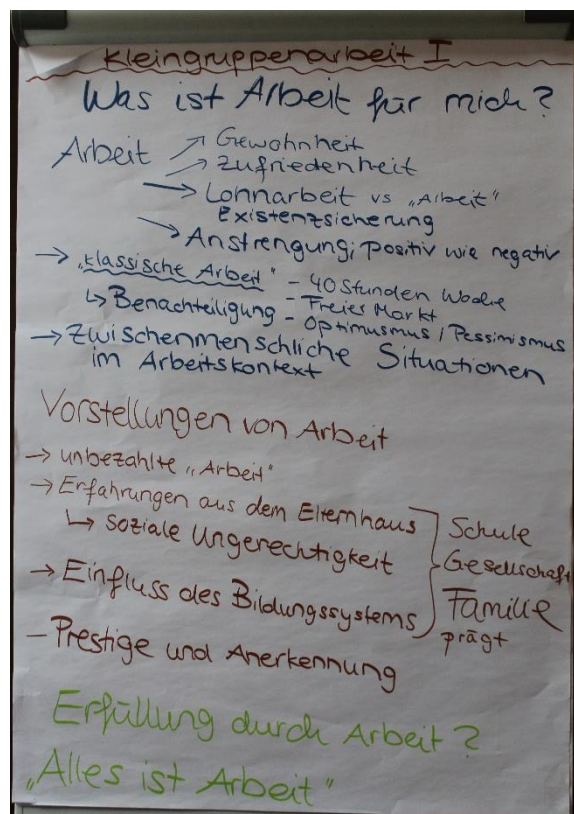 Kleingruppenarbeit I
Was ist Arbeit für mich?
Arbeit ↗ Gewohnheit
↗ Zufriedenheit
→ Lohnarbeit vs „Arbeit"
Existenzsicherung
↘ Anstrengung; positiv wie negativ
→ „klassische Arbeit" - 40 Stunden Woche
↳ Benachteiligung - Freier Markt
- Optimusmus / Pessimismus
→ Zwischenmenschliche Situationen
im Arbeitskontext
Vorstellungen von Arbeit
→ unbezahlte „Arbeit"
→ Erfahrungen aus dem Elternhaus
↳ soziale Ungerechtigkeit
→ Einfluss des Bildungssystems
Schule
Gesellschaft
Familie
prägt
- Prestige und Anerkennung
Erfüllung durch Arbeit?
„Alles ist Arbeit"